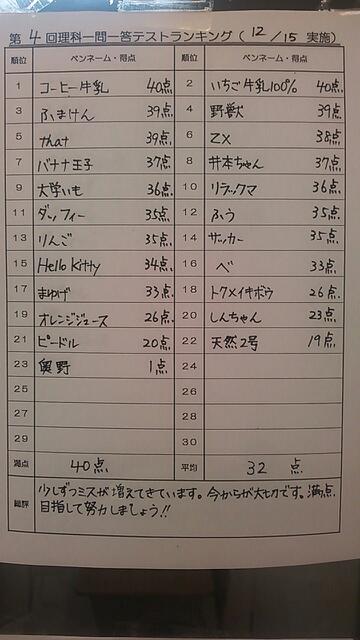 第4回理科一問一答テストランキング(12/15 実施)
順位 ペンネーム・得点 順位 ペンネーム・得点
1 コーヒー牛乳 40点 2 いちご牛乳100% 40点
3 ふまけん 39点 4 野獣 39点
5 that 39点 6 ZX 38点
7 バナナ王子 37点 8 井本ちゃん 37点
9 大学いも 36点 10 リラックマ 36点
11 ダッフィー 35点 12 ふう 35点
13 りんご 35点 14 サッカー 35点
15 Hello Kitty 34点 16 ぺ 33点
17 まゆげ 33点 18 トクメイキボウ 26点
19 オレンジジュース 26点 20 しんちゃん 23点
21 ピードル 20点 22 天然2号 19点
23 奥野 1点 24
25 26
27 28
29 30
満点 40点 平均 32 点
総評 少しずつミスが増えてきています。今からが大切です。満点
目指して努力しましょう!!